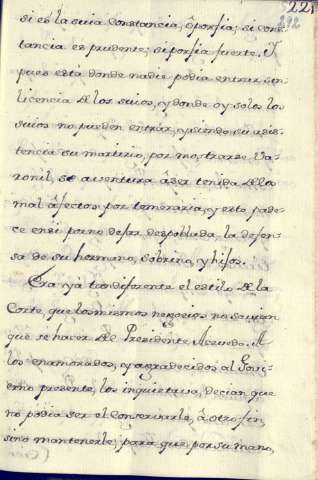 221
292
si es la suia Constancia, ô porfia; si cons-
tancia es prudente; si porfia fuerte. Y
pues està donde nadie podia entrar sin
licencia de los suios, y donde oy solos los
suios no pueden entrar, y siendo su asis-
tencia su martirio, por mostrarse Va-
ronil, se aventura â ser tenida de los
mal âfectos por temeraria, y esto pade-
ce en si por no dejar despoblada la defen-
sa de su hermano, sobrino, y hijos.
Era yâ tan diferente el estilo de la
Corte, que los mismos negocios no savian
que se hacer de Presidente Acevedo. A
los enamorados, y agradecidos al Govi-
erno presente, los inquietava, decian que
no podia ser el Conservarle, â otro fin,
sino mantenerle, para que por su mano,